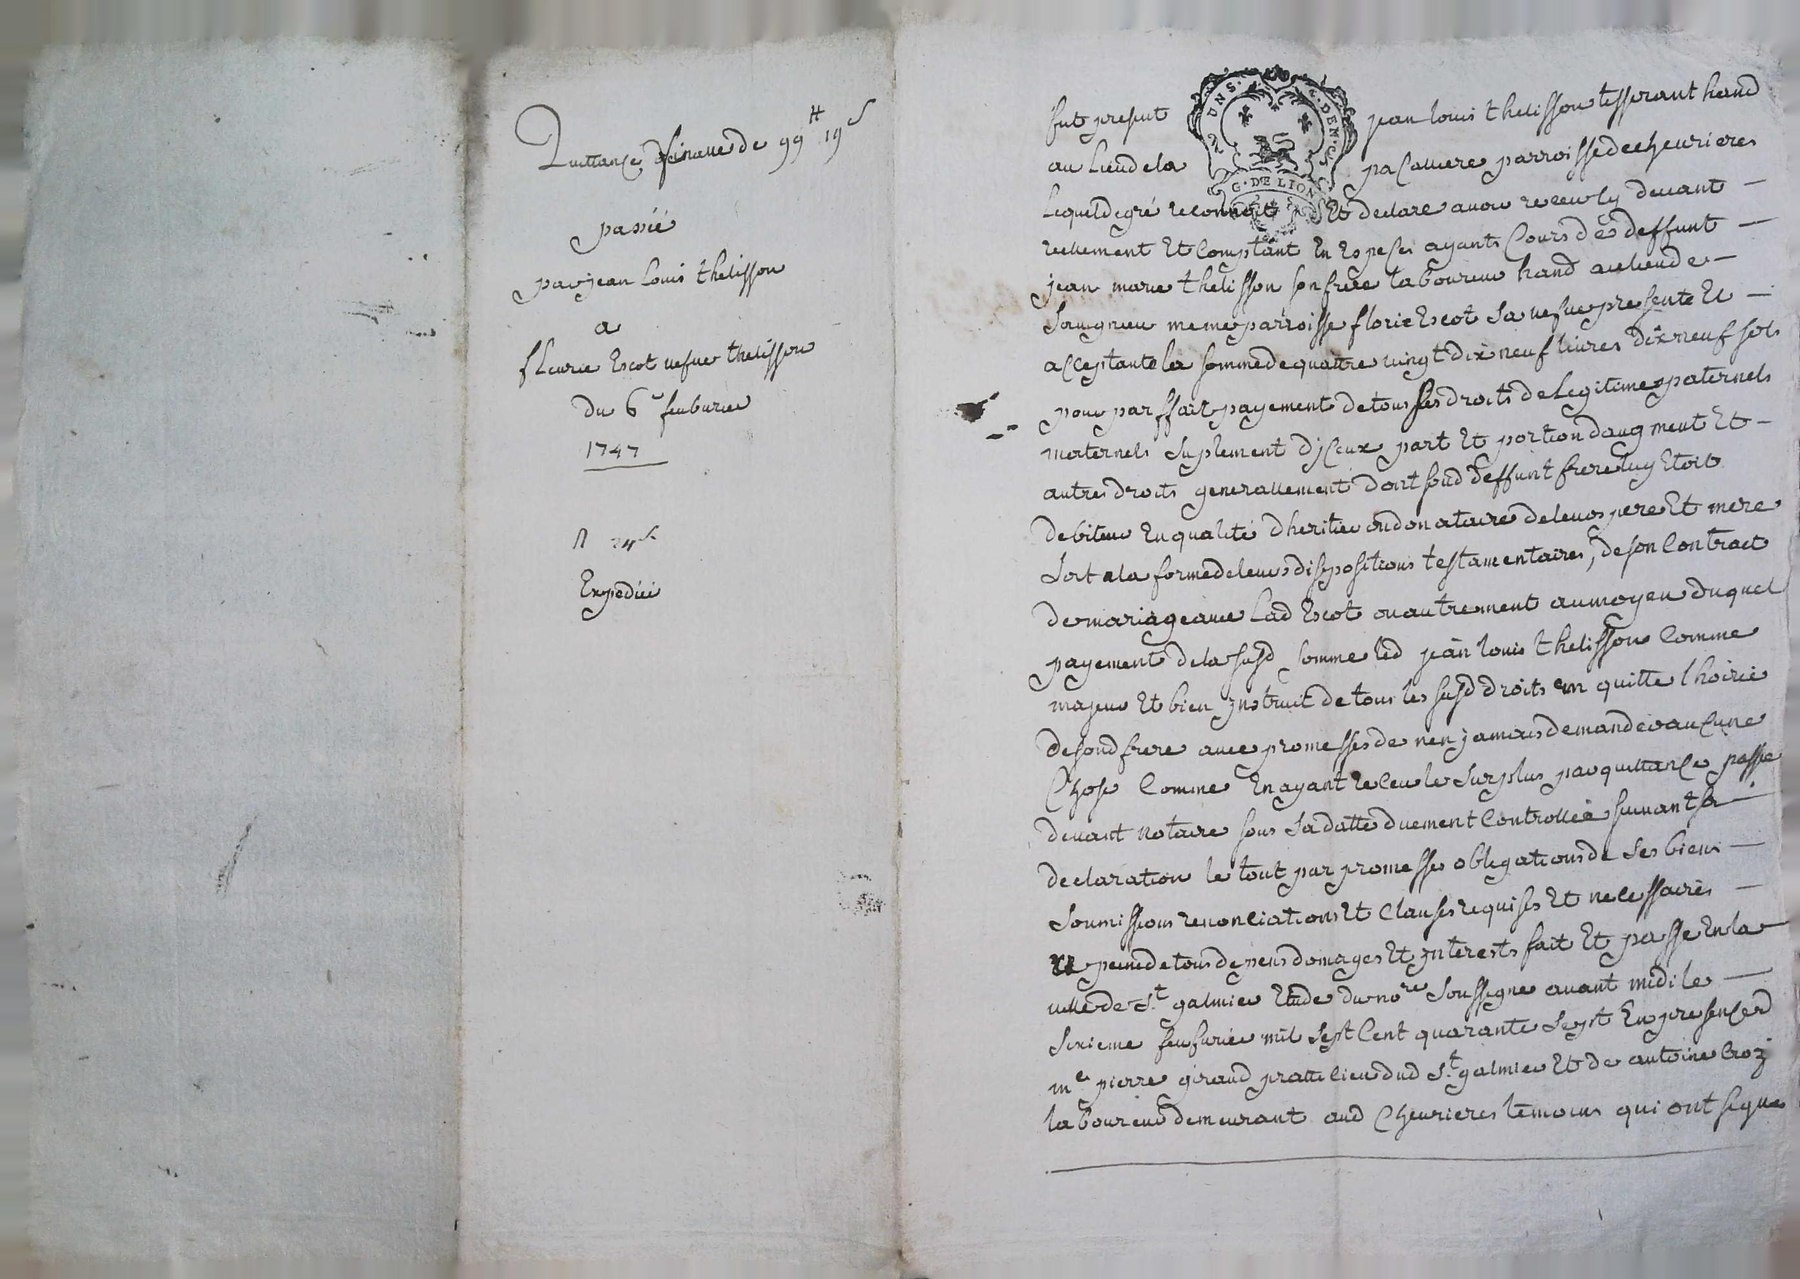 Quittance finalle de 99ᵗᵗ 19ˢ
passée
par jean Louis thelisson
a
fleurie Escot vefve thelisson
du 6ᵉ feuburier
1747
Expediée
fut present jean louis thelisson tisserant hand
au Lieu de la pacalliere parroisse de cheurieres
UN S. DEN.
G. DE LION
Lequel de gré reconnoit Et declare avoir receu cy devant
reellement Et Comptant En Especes ayants Cours de deffunt
jean marie thelisson son frere laboureur hand au lieu de
Savignieu meme parroisse florie Escot sa vefve presente Et
acceptante la somme de quattre vingt dix neuf livres dix neuf sols
pour parffait payement de tous ses droits de Legitimes paternels
maternels suplement djceux part Et portion daugment Et
autres droits generallement dont sond deffunt frere luy Etoit
debiteur En qualité dheritier ou donataire de leurs pere Et mere
soit a la forme de leurs dispositions testamentaires, de son Contract
de mariage avec Lad Escot ou autrement au moyen duquel
payement de la susd somme led jean louis thelisson Comme
majeur Et bien jnstruit de tous les susd droits en quitte lhoirie
de sond frere avec promesses de nen jamais demander aucune
Chose Comme En ayant receu le surplus par quittance passé
devant notaire sous sa datte duement Controllée suivant sa
declaration le tout par promesses obligations de ses biens
soumissions renonciations Et Clauses requises Et necessaires
peine de tous depens domages Et jnterests fait Et passé En la
ville de Sᵗ galmier Etude du noʳᵉ soussigné avant midi le
sixieme feufurier mil sept Cent quarante sept En presence d
mᵉ pierre giraud pratticien dud Sᵗ galmier Et de antoine Croz
laboureur demeurant aud Cheurieres temoins qui ont signé